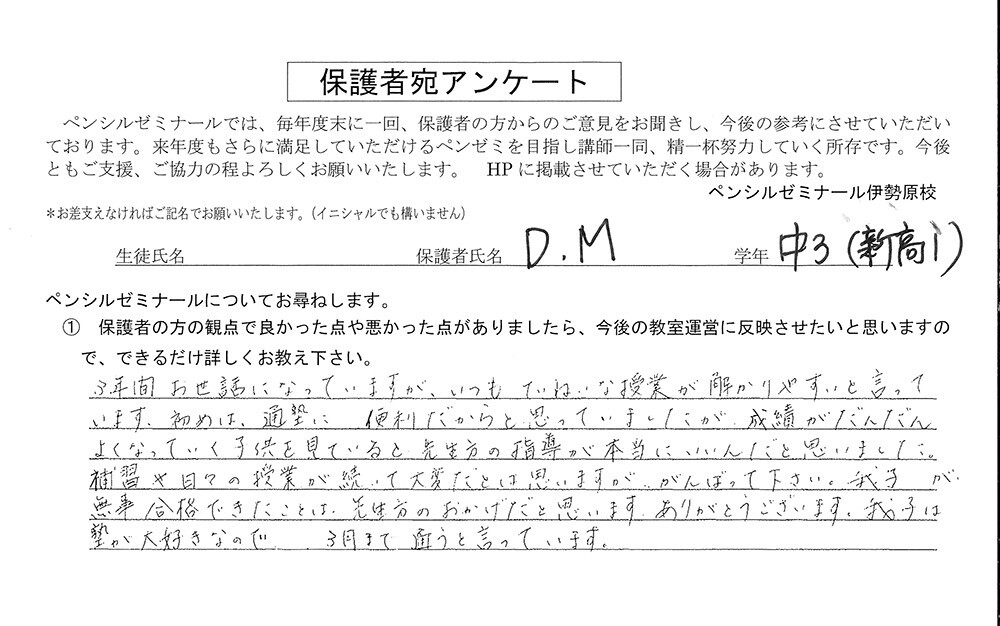 保護者宛アンケート
ペンシルゼミナールでは、毎年度末に一回、保護者の方からのご意見をお聞きし、今後の参考にさせていただい
ております。来年度もさらに満足していただけるペンゼミを目指し講師一同、精一杯努力していく所存です。今後
ともご支援、ご協力の程よろしくお願いいたします。 HPに掲載させていただく場合があります。
ペンシルゼミナール伊勢原校
*お差支えなければご記名でお願いいたします。(イニシャルでも構いません)
生徒氏名 保護者氏名 D.M 学年 中3(新高1)
ペンシルゼミナールについてお尋ねします。
① 保護者の方の観点で良かった点や悪かった点がありましたら、今後の教室運営に反映させたいと思いますの
で、できるだけ詳しくお教え下さい。
3年間お世話になっていますが、いつもていねいな授業が解かりやすいと言って
います。初めは、通塾に便利だからと思っていましたが成績がだんだん
よくなっていく子供を見ていると先生方の指導が本当にいいんだと思いました。
補習や日々の授業が続いて大変だとは思いますが、がんばって下さい。我子が
無事合格できたことは、先生方のおかげだと思います。ありがとうございます。我子は
塾が大好きなので 3月まで通うと言っています。